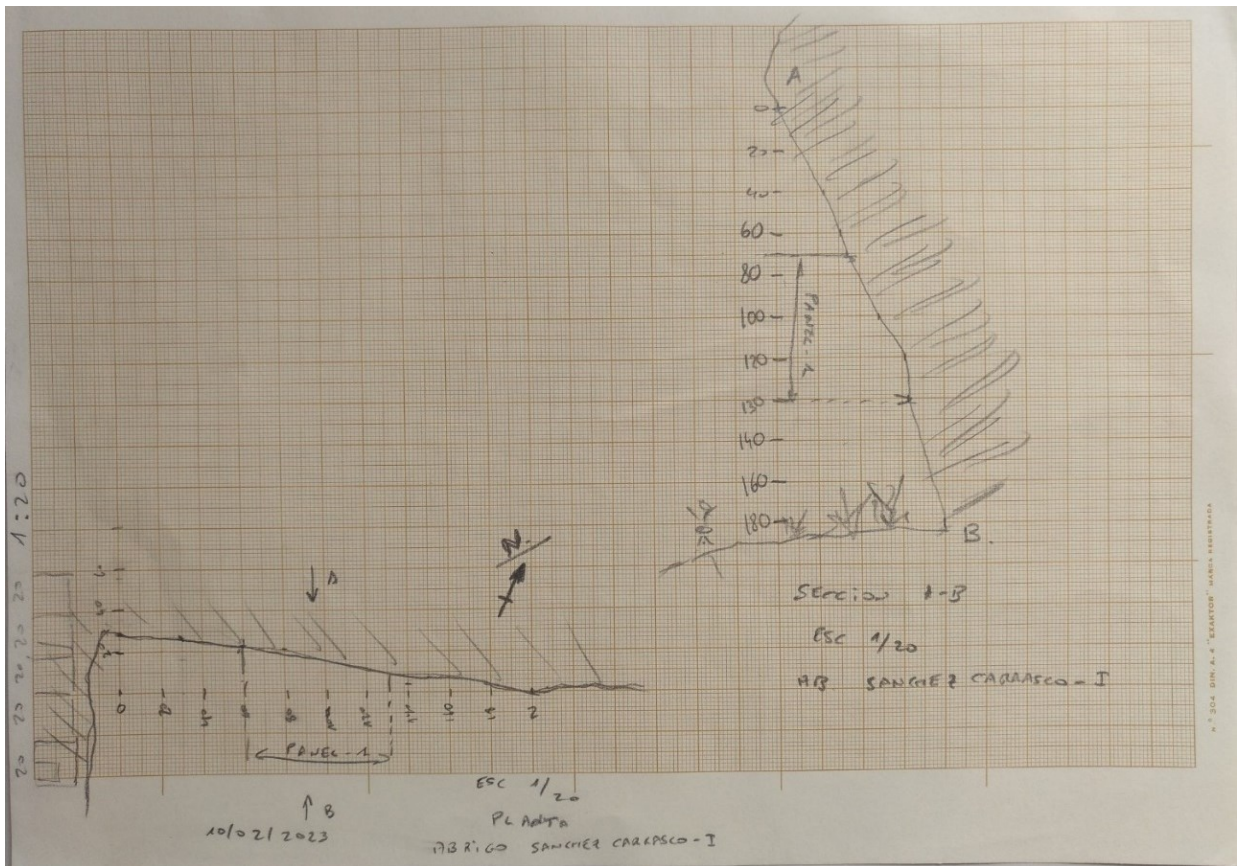 A
0
20
40
60
80
100
120
130
140
160
180
PANEL-1
B.
SECCION A-B
ESC 1/20
AB SANCHEZ CARRASCO-I
1:20
20
20
20
20
20
20
N.
A
0
2
PANEL-1
B
10/02/2023
ESC 1/20
PLANTA
ABRIGO SANCHEZ CARRASCO-I
Nº 504 DIN. A. 4 "EXAKTOR" MARCA REGISTRADA